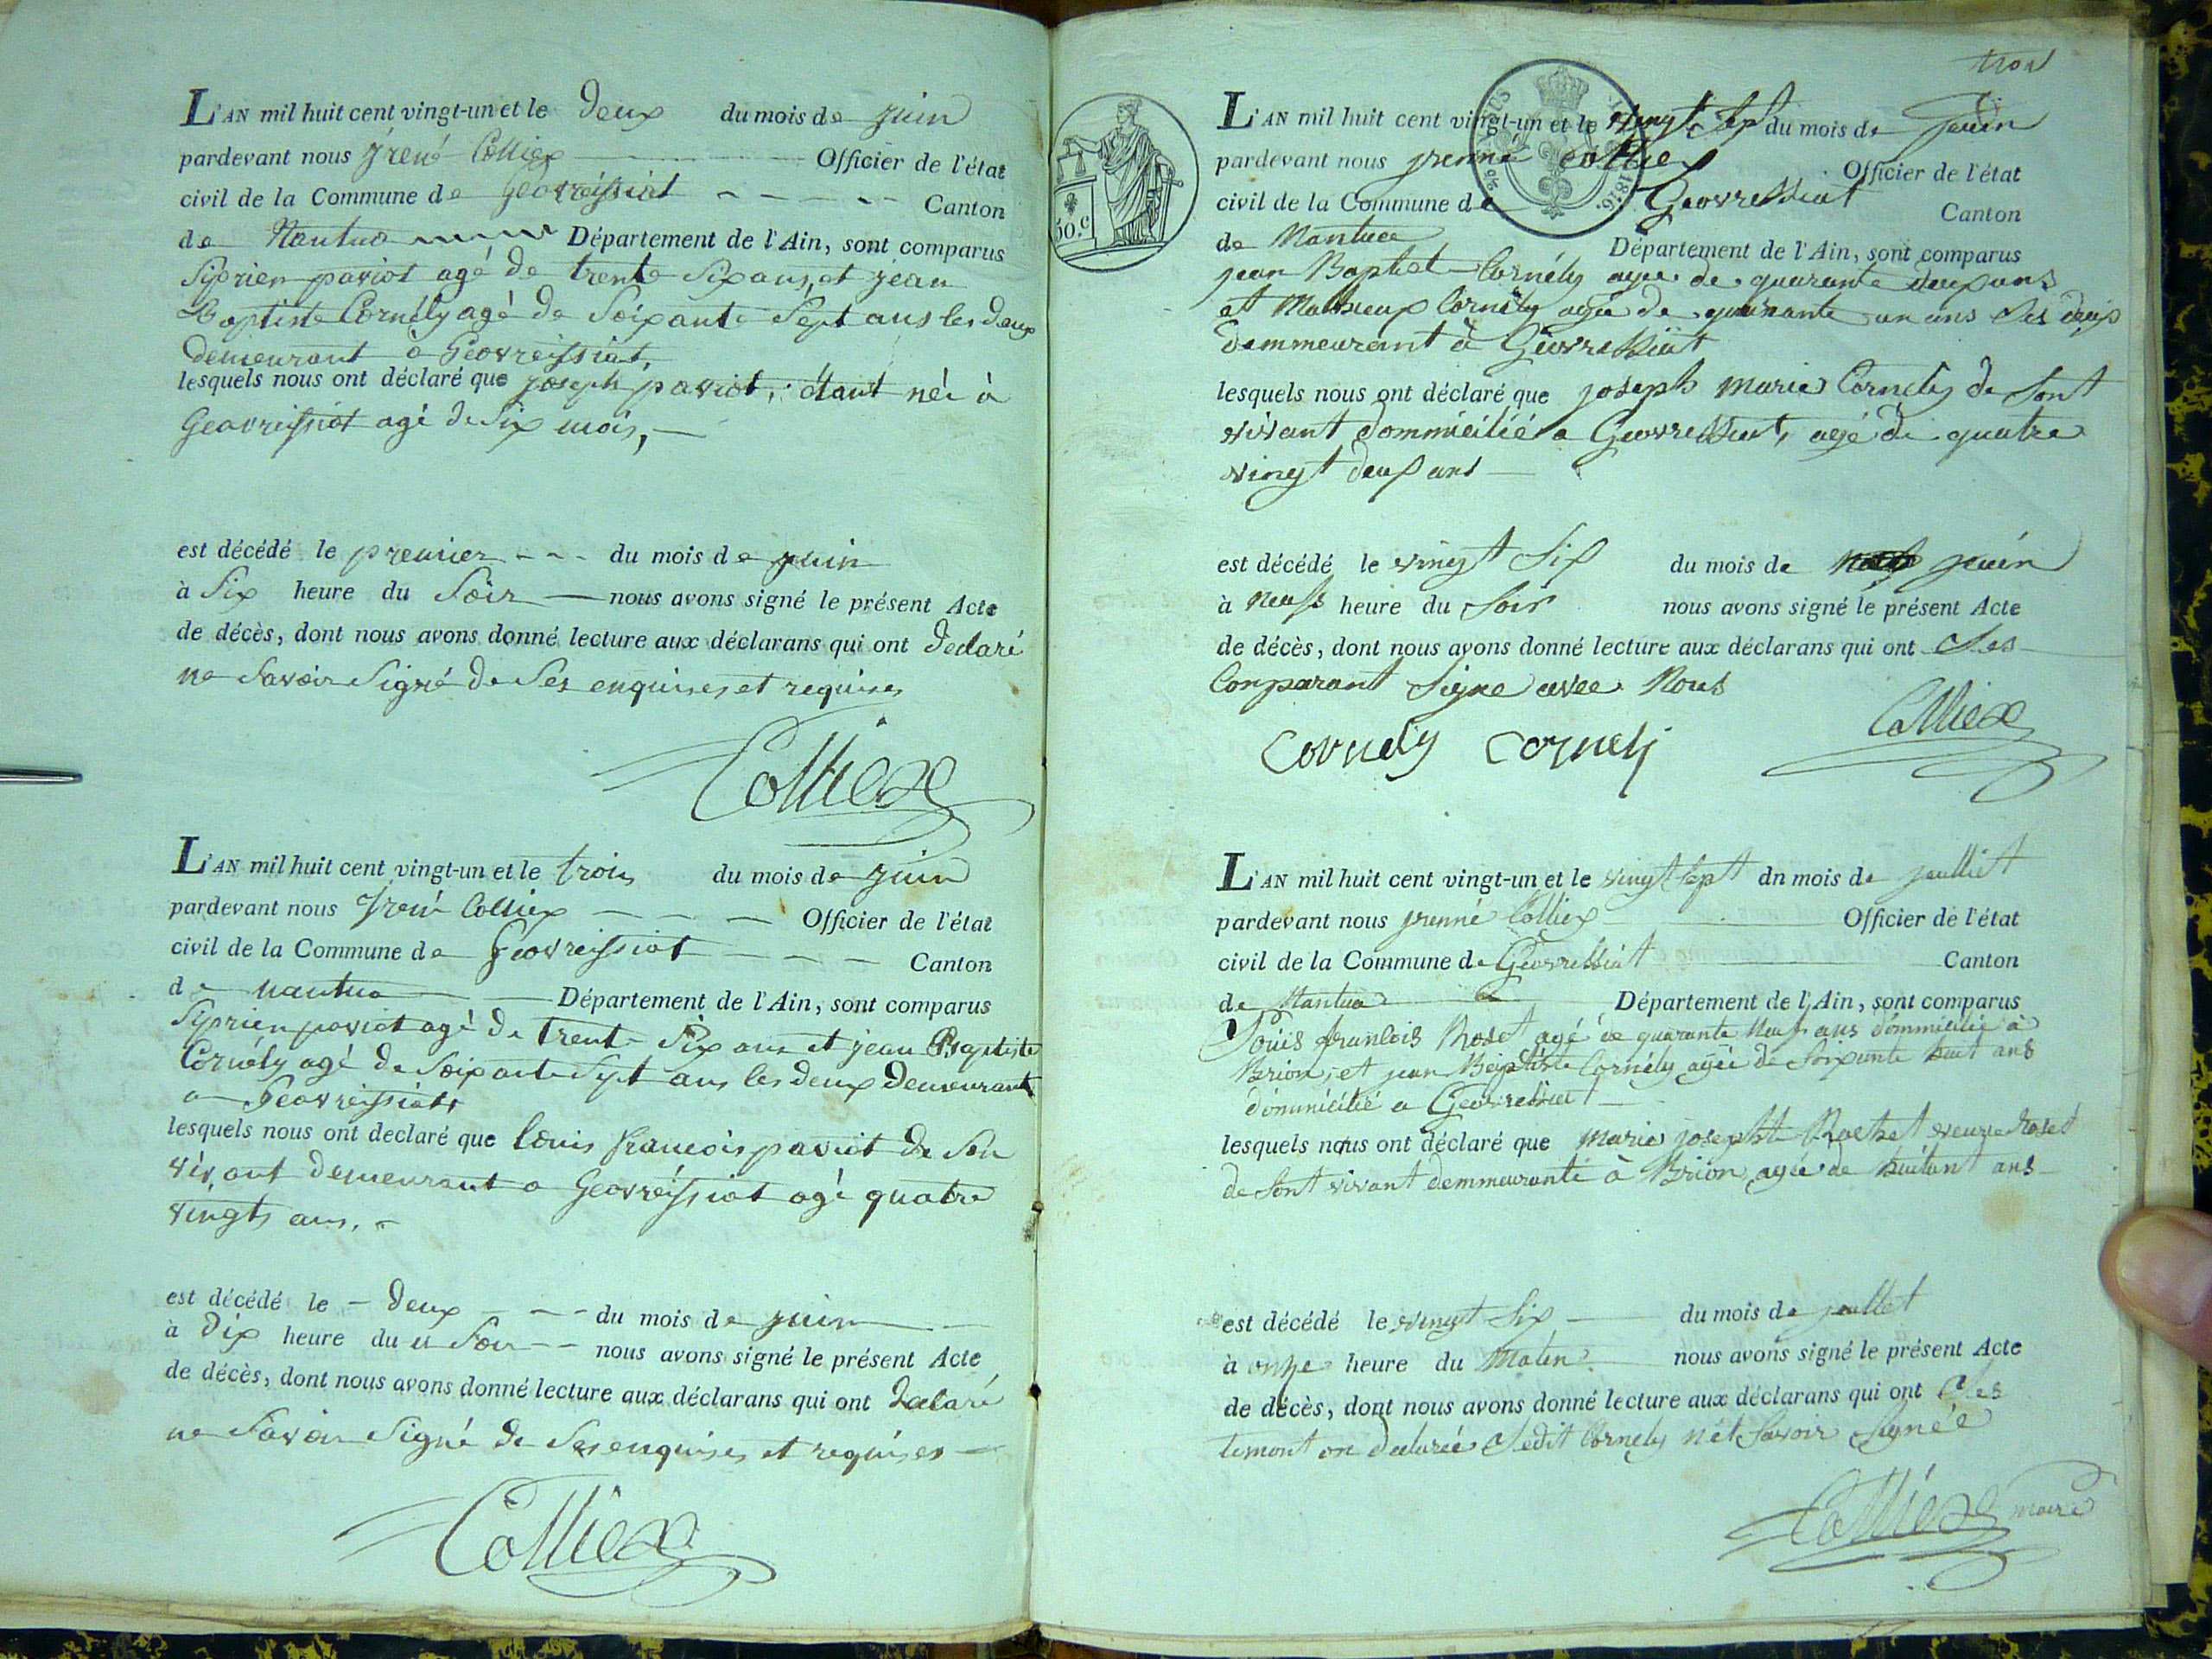 L'AN mil huit cent vingt-un et le deux du mois de juin
pardevant nous jrené Colliex Officier de l'état
civil de la Commune de Geovreissiat Canton
de Nantua Département de l'Ain, sont comparus
Siprien paviot agé de trente Six ans, et jean
Baptiste Cornély agé de Soixante Sept ans les deux
demeurant à Geovreissiat,
lesquels nous ont déclaré que joseph paviot, étant néi à
Geovreissiat agé de Six mois,
est décédé le premier du mois de juin
à Six heure du Soir nous avons signé le présent Acte
de décès, dont nous avons donné lecture aux déclarans qui ont declaré
ne Savoir Signé de Ses enquises et requises
Colliex
L'AN mil huit cent vingt-un et le trois du mois de juin
pardevant nous jrené Colliex Officier de l'état
civil de la Commune de Geovreissiat Canton
de nantua Département de l'Ain, sont comparus
Siprien paviot agé de trente Six ans et jean Baptiste
Cornély agé de Soixante Sept ans les deux demeurant
a Geovreissiat,
lesquels nous ont declaré que louis francois paviot de Son
vivant demeurant a Geovréissiat agé quatre
vingts ans.
est décédé le deux du mois de juin
à dix heure du Soir nous avons signé le présent Acte
de décès, dont nous avons donné lecture aux déclarans qui ont declaré
ne Savoir Signé de Ses enquises et requises
Colliex
trois
L'AN mil huit cent vingt-un et le vingt Sep du mois de juin
pardevant nous jrenné colliex Officier de l'état
civil de la Commune de Geovressiat Canton
de Nantua Département de l'Ain, sont comparus
50.c
1816.
jean Baptist Cornély agée de quarante deux ans
et Mathieux Cornély agée de quarante un ans Les deux
demmeurant à Géovressiat
lesquels nous ont déclaré que joseph marie Cornély de Sont
vivant dommicilié a Geovressiat, agé de quatre
vingt deux ans
est décédé le vingt Six du mois de juin
à neuf heure du Soir nous avons signé le présent Acte
de décès, dont nous avons donné lecture aux déclarans qui ont Les
Conparant Signe avec Nous
Cornely Cornely Colliex
L'AN mil huit cent vingt-un et le vingt Sept dn mois de jeulliet
pardevant nous jrenné Colliex Officier de l'état
civil de la Commune de Géovressiat Canton
de Nantua Département de l'Ain, sont comparus
Louis francois Roset agé de quarante neuf ans dommicilié à
Brion, et jean Baptiste Cornély agée de Soixante huit ans
domimicilié a Géovressiat
lesquels nous ont déclaré que marie josepht Rochet veuve roset
de Sont vivant demmeurante à Brion agée de huitant ans
est décédé le vingt Six du mois de jeullet
à onze heure du Matin nous avons signé le présent Acte
de décès, dont nous avons donné lecture aux déclarans qui ont Les
temont on declarée Ledit Cornely nét Savoir Signée
Colliex maire